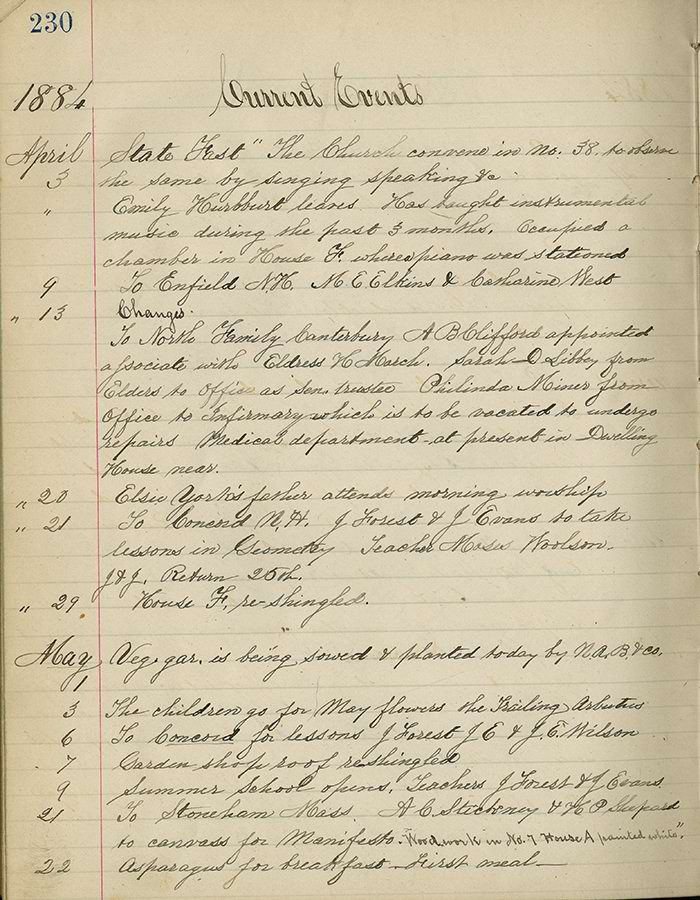 230
1884 Current Events
April State Fast" The Church convene in No. 38. to observe
3 the same by singing speaking &c.
" Emily Hurlburt leaves Has taught instrumental
music during the past 3 months. Occupied a
chamber in House F. where piano was stationed
9 To Enfield N.H. M. E. Elkins & Catharine West
" 13 Changes.
To North Family Canterbury A B Clifford appointed
associate with Eldress H March. Sarah D Libbey from
Elders to Office as sen. trustee Philinda Miner from
Office to Infirmary which is to be vacated to undergo
repairs Medical department at present in Dwelling
House near.
" 20 Elsie York's father attends morning worship
" 21 To Concord N.H. J Forest & J Evans to take
lessons in Geometry Teacher Moses Woolson.
J & J. Return 25th.
" 29 House F, re-shingled.
May Veg. gar. is being sowed & planted today by N.A.B. & co.
1
3 The children go for May flowers the Trailing Arbutus
6 To Concord for lessons J Forest J E & J. E. Wilson
7 Garden shop roof reshingled
9 Summer School opens. Teachers J Forest & J Evans.
21 To Stoneham Mass. A C. Stickney & H P Shepard
to canvass for Manifesto. Wood work in No. 7 House A painted white".
22 Asparagus for breakfast - First meal -